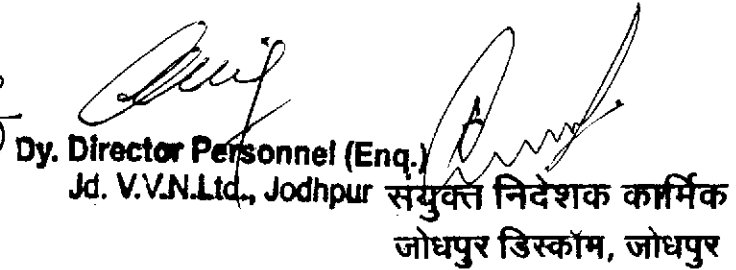 Dy. Director Personnel (Enq.)
Jd. V.V.N.Ltd., Jodhpur
संयुक्त निदेशक कार्मिक
जोधपुर डिस्कॉम, जोधपुर